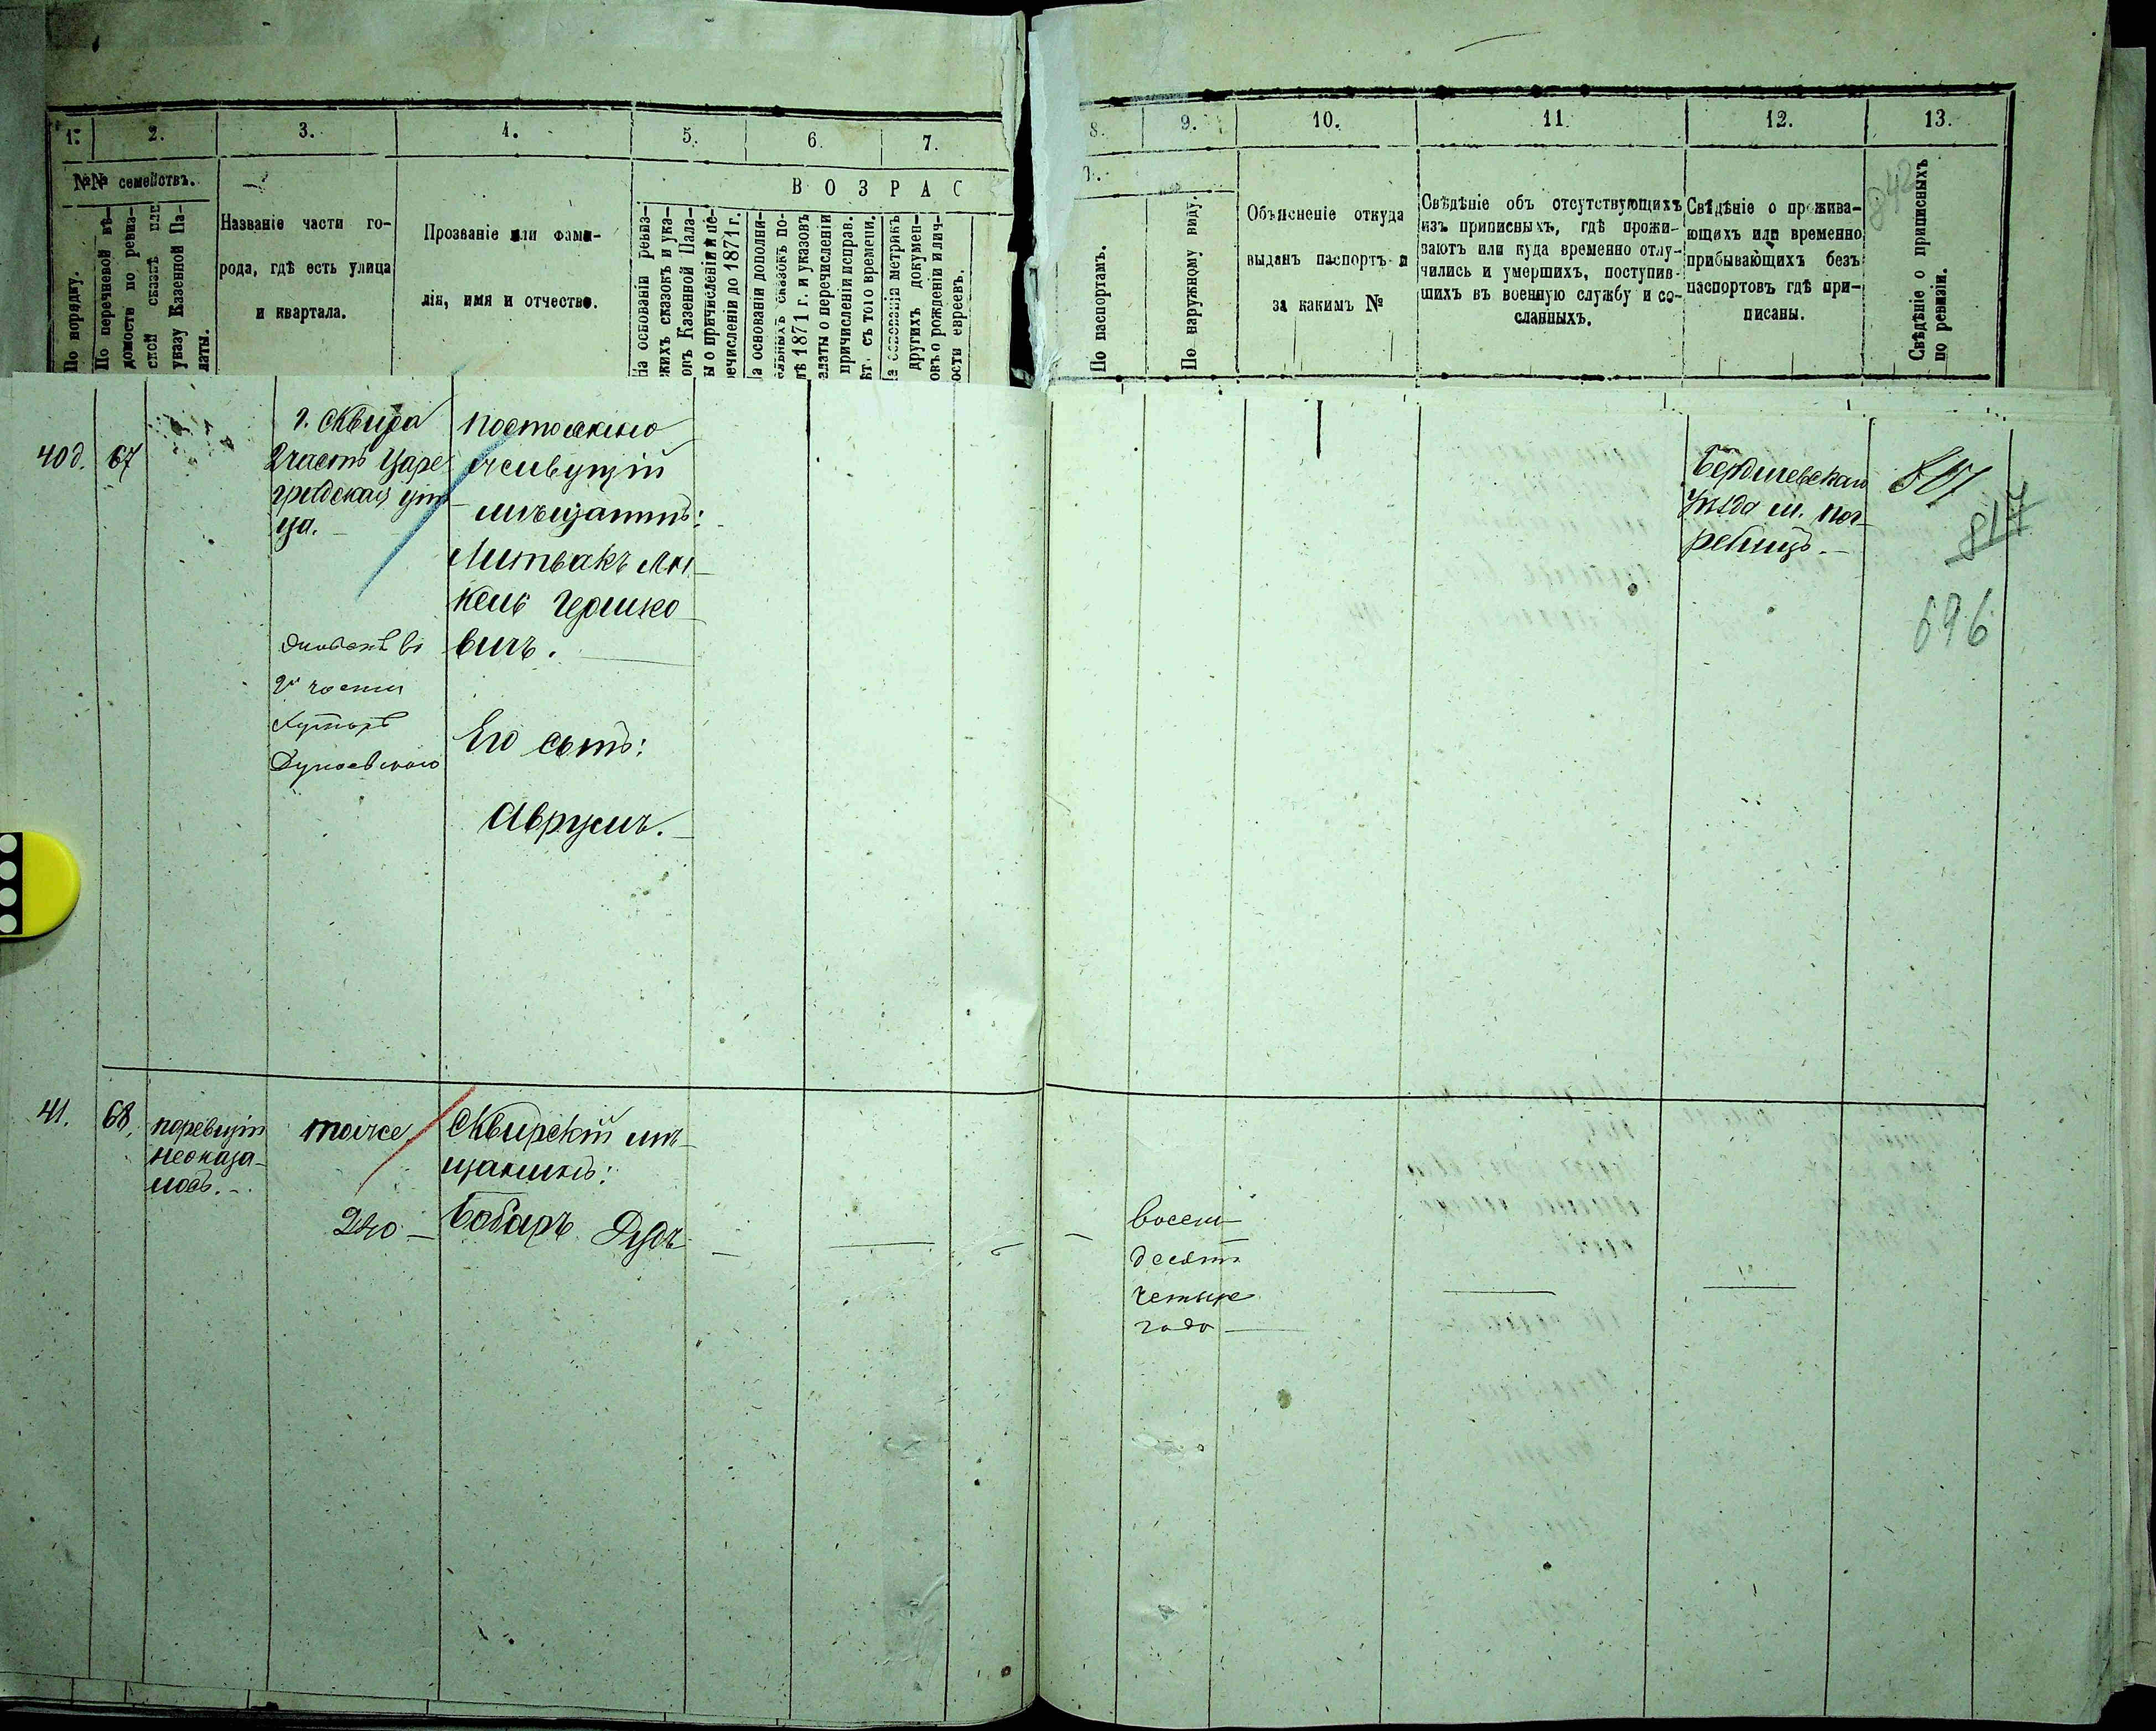 1.
2.
3.
4.
5.
6.
7.
8.
9.
10.
11.
12.
13.
№№ семействъ.
В О З Р А С
По порядку.
По перечневой вѣ-
домости по ревиз-
ской сказкѣ или
указу Казенной Па-
латы.
Названіе части го-
рода, гдѣ есть улица
и квартала.
Прозваніе или фами-
лія, имя и отчество.
На основаніи ревиз-
скихъ сказокъ и ука-
зовъ Казенной Пала-
ы о причисленіи и пе-
речисленіи до 1871 г.
а основаніи дополни-
ельныхъ сказокъ по-
лѣ 1871 г. и указовъ
алаты о перечисленіи
причисленіи исправ.
ѣт. съ того времени.
а основаніи метрикъ
другихъ докумен-
овъ о рожденіи и лич-
ости евреевъ.
По паспортамъ.
По наружному виду.
Объясненіе откуда
выданъ паспортъ и
за какимъ №
Свѣдѣніе объ отсутствующихъ
изъ приписныхъ, гдѣ прожи-
ваютъ или куда временно отлу-
чились и умершихъ, поступив-
шихъ въ военную службу и со-
сланныхъ.
Свѣдѣніе о прожива-
ющихъ или временно
прибывающихъ безъ
паспортовъ гдѣ при-
писаны.
Свѣдѣніе о приписныхъ
по ревизіи.
842
40д.
67
г. Сквира
2 часть Царе
градская ули
ца.
2й части
Хуторъ
постоянно
живущій
мѣщанинъ:
Литвакъ Ян
кель Гершко
вичъ.
Его сынъ:
Аврумъ.
Бердичевскаго
уѣзда м. Пог
ребищъ.
817
696
41.
68.
поревизіи
неоказа-
лось.
тоже
Сквирскій мѣ
щанинъ:
Бобаръ Дудь
восемь
десятъ
четыре
года